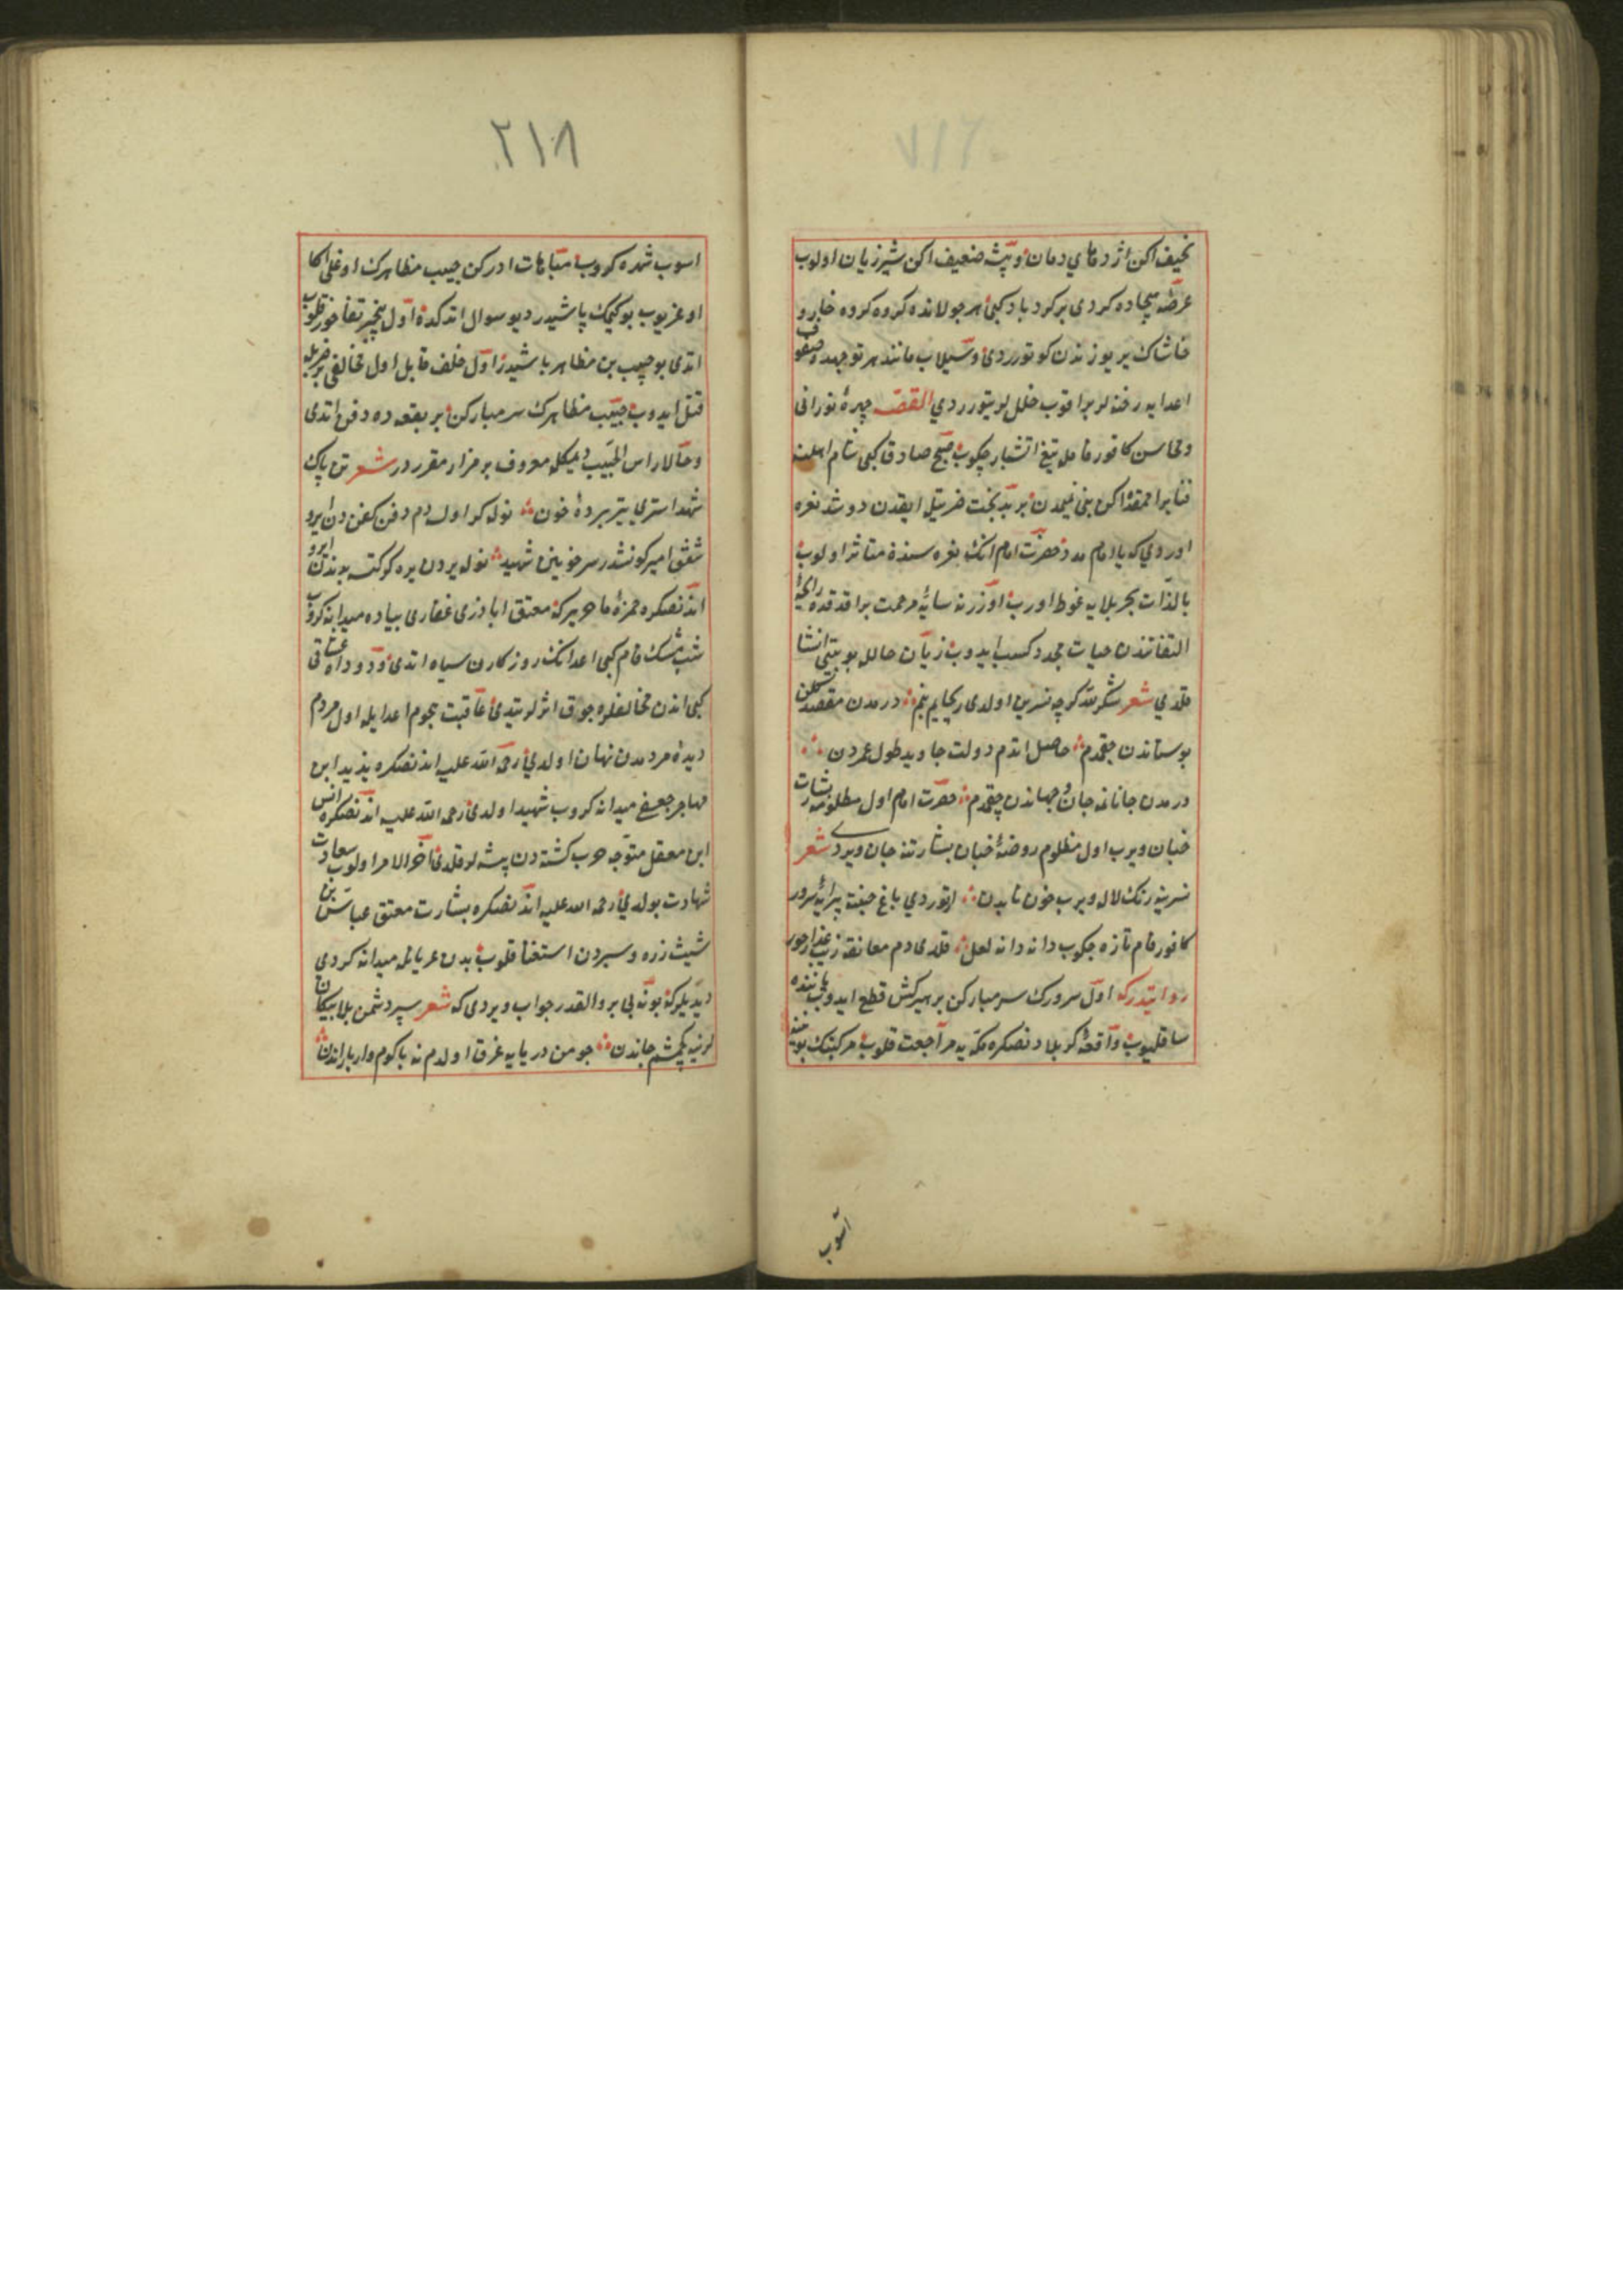 نحیف اکن اژدهای دمان و پشه ضعیف اکن شیر ژیان اولوب
عرصه هیجاده کردی بر کردباد کبی هر جولانده کروه کروه خار و
خاشاک یر یوزندن کوتوردی و سیلاب مانند هر توجهده صفوف
اعدایه رخنه لر براقوب خللر یتوردی القصه چهرهٔ نورانی
ومحاسن کافور فامله تیغ اتشبار چکوب صبح صادق کبی شام اهلنه
فنا براغمقده اکن بنی تمیمدن بر بدبخت ضربتیله ایقدن دوشد نعره
اوردی که یا امام مدد حضرت امام انک نعره سندن متاثر اولوب
بالذات بحر بلایه غوطه اورب اوزرنه سایهٔ مرحمت براقدقده رایحهٔ
التفاتندن حیات مجدد کسب ایدوب زبان حالله بو بیتی انشا
قلدی شعر شکر لله کرچه نسرین اولدی ریحانم بنم درمدن مقصد کلن
بوستاندن چقمدم حاصل اتدم دولت جاوید طول عمردن
درمدن جانانمه جان جهاندن چقمدم حضرت امام اول مظلومه بشارت
جنان ویرب اول مظلوم روضهٔ جنان بشارتنه جان ویردی شعر
نسرینه رنک لاله ویرب خون نابدن ارتوردی باغ جنته پیرایهٔ سرور
کافور فام تازه چکوب دانه دانه لعل قلدی دم معانقه زیب عذار حور
روایتدرکه اول سرورک سر مبارکن بر سرکش قطع ایدوب یاننده
ساقلیوب واقعهٔ کربلادنصکره مکه یه مراجعت قلوب مرکبنک بوینینه
اسوب
٢١٨
اسوب شهره کروب مباهات ادرکن حبیب مظاهرک اوغلی اکا
اوغریوب بو کیمک باشیدر دیو سوال اتدکده اول بیخبر تفاخر قلوب
اتدی بو حبیب بن مظاهر باشیدر اول خلف قابل اول مخالفی بر ضربله
قتل ایدوب حبیب مظاهرک سر مبارکن بر بقعه ده دفن اتدی
وحالا راس الحبیب دیمکله معروف بر مزار مقرردر شعر تن پاک
شهدا ستری یتر پردهٔ خون نوله کر اول دم دفن کفن دن ایرو
شفق امیر کونشدر سر خونین شهید نوله یردن یره کر کتسه بدندن ایرو
اندنصکره حمزهٔ ماهویرکه معتق اباذری غفاری پیاده میدانه کروب
شب مشک فام کبی اعدانک روزکارن سیاه اتدی و دود اه عشاق
کبی اندن مخالفلره چوق اثرلر یتدی عاقبت هجوم اعدایله اول مردم
دیدهٔ مردمدن نهان اولدی رحمة الله علیه اندنصکره یزید ابن
مهاجر جعفی میدانه کروب شهید اولدی رحمة الله علیه اندنصکره انس
ابن معقل متوجه حرب کشته دن پشته لر قلدی آخر الامر اولوب سعادت
شهادت بولدی رحمة الله علیه اندنصکره بشارت معتق عباس بن
شیث زره و سپردن استغنا قلوب بدن عریانله میدانه کردی
دیدیلرکه بو نه بی پروالقدر جواب ویردی که شعر سپر دشمن بلا پیکان
لرنه چکمشم جاندن چو من دریایه غرق اولدم نه باکوم وار باراندن